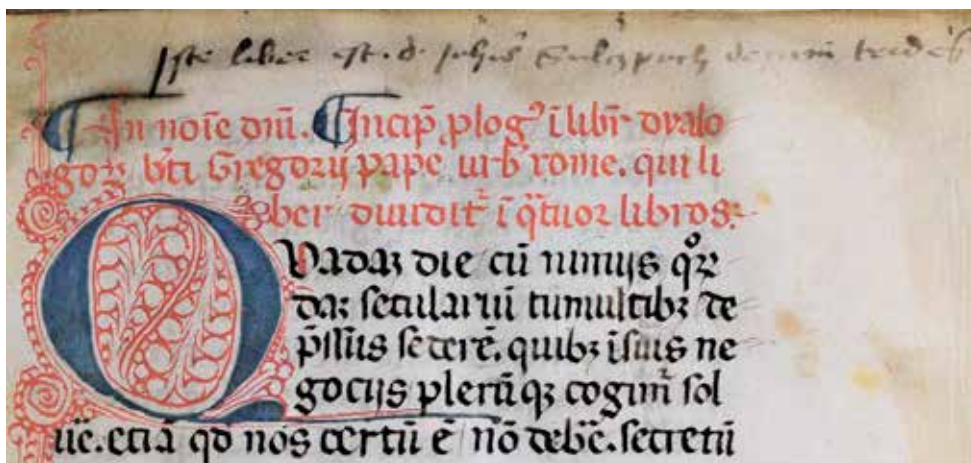 Iste liber est d Johis Sulczpach decani tridēs
In noīe dn̄i. Incip̄ ꝓlogꝰ ī libꝝ dyalo
goꝝ bt̄i Gregorij pape urb̄ rome. qui li
ber diuidit᷑ ī qͣtuor libros:
Quadaꝫ die cū nimijs qͦꝝ
daꝫ seculariū tumultibꝫ de
p̄ssus sederē. quibꝫ ī suis ne
gocijs plerūqꝫ cogim᷑ sol
ue᷑. eciā qd nos certū ē nō debe᷑. secretū